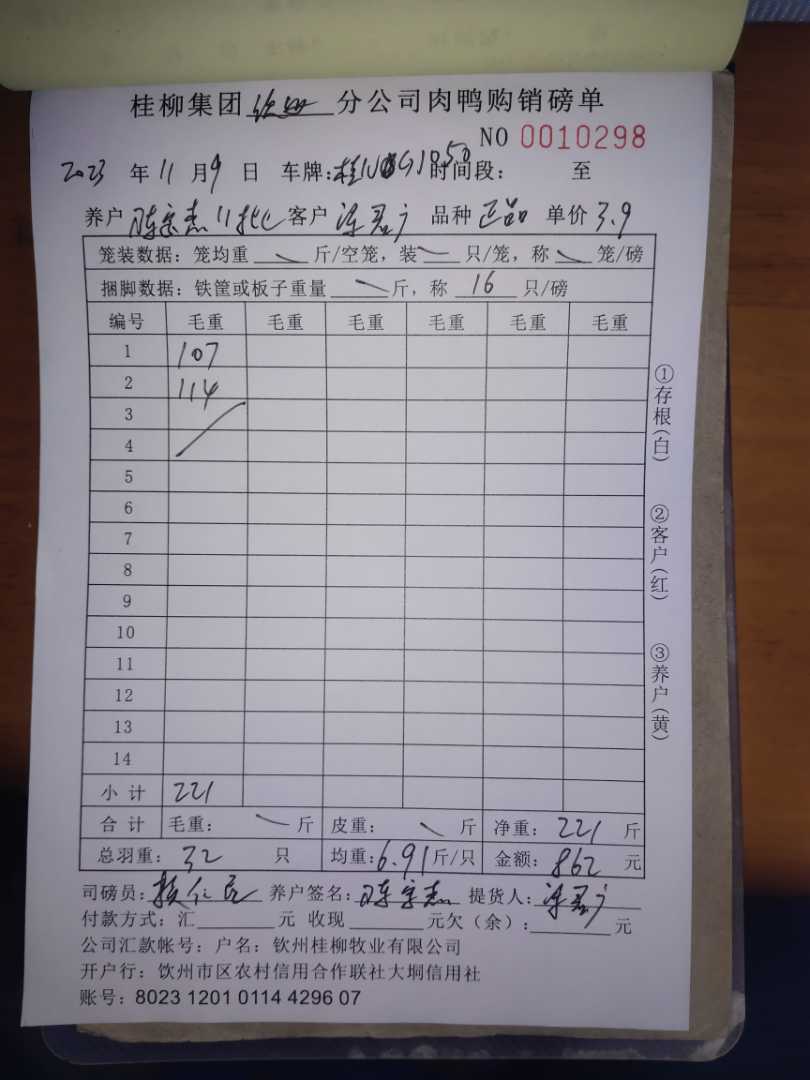 桂柳集团钦州分公司肉鸭购销磅单
NO 0010298
2023 年 11 月 9 日 车牌: 时间段: 至
养户 陈宗杰11批 客户 品种 正品 单价 3.9
笼装数据: 笼均重 斤/空笼, 装 只/笼, 称 笼/磅
捆脚数据: 铁筐或板子重量 斤, 称 16 只/磅
编号 毛重 毛重 毛重 毛重 毛重 毛重
1 107
2 114
3
4
5
6
7
8
9
10
11
12
13
14
小 计 221
合 计 毛重: 斤 皮重: 斤 净重: 221 斤
总羽重: 32 只 均重: 6.91 斤/只 金额: 862 元
司磅员: 养户签名: 陈宗杰 提货人:
付款方式: 汇 元 收现 元欠(余): 元
公司汇款帐号: 户名: 钦州桂柳牧业有限公司
开户行: 饮州市区农村信用合作联社大垌信用社
账号: 8023 1201 0114 4296 07
①存根(白)
②客户(红)
③养户(黄)